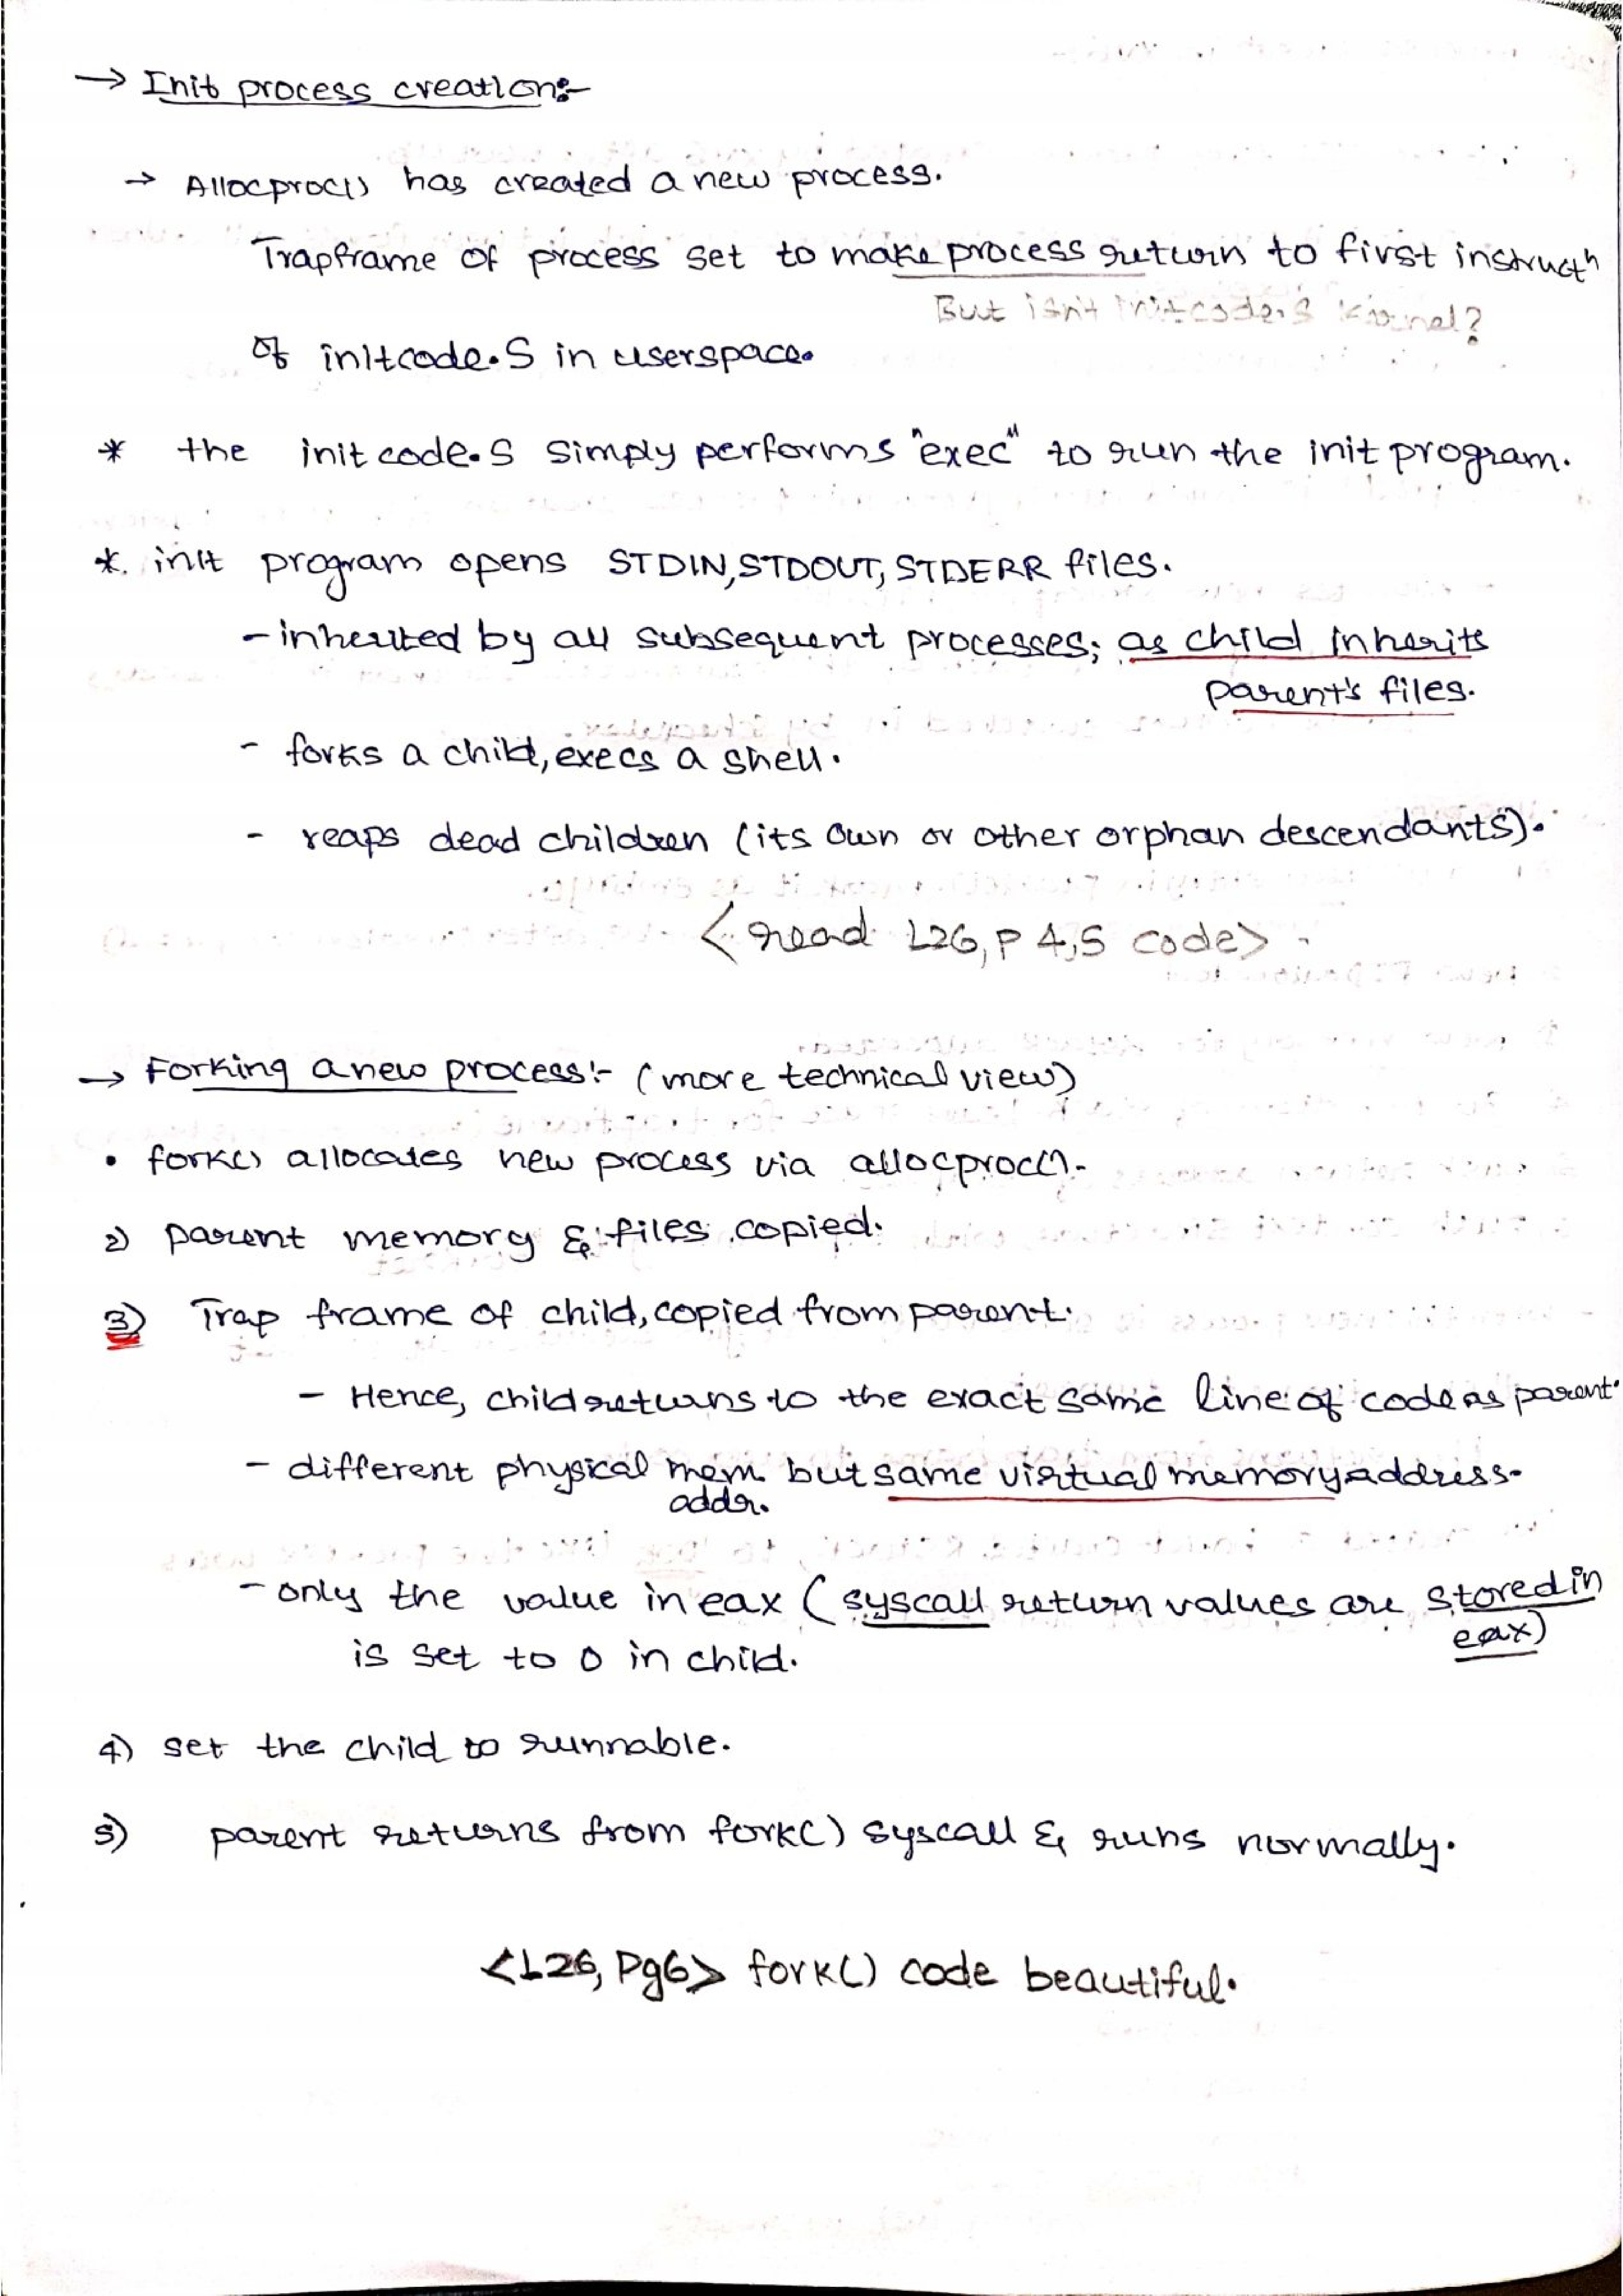 → Init process creation:-
→ Allocproc() has created a new process.
Trapframe of process set to make process return to first instructn
But isn't initcode.S kernel?
of initcode.S in userspace.
* the initcode.S simply performs "exec" to run the init program.
* init program opens STDIN, STDOUT, STDERR files.
- inherited by all subsequent processes; as child inherits
parent's files.
- forks a child, execs a shell.
- reaps dead children (its own or other orphan descendants).
<read L26, P 4,5 code>
→ Forking a new process:- (more technical view)
• fork() allocates new process via allocproc().
2) parent memory & files copied.
3) Trap frame of child, copied from parent.
- Hence, child returns to the exact same line of code as parent.
- different physical mem. but same virtual memory address.
addr.
- only the value in eax (syscall return values are stored in
eax)
is set to 0 in child.
4) set the child to runnable.
5) parent returns from fork() syscall & runs normally.
<L26, Pg6> fork() code beautiful.